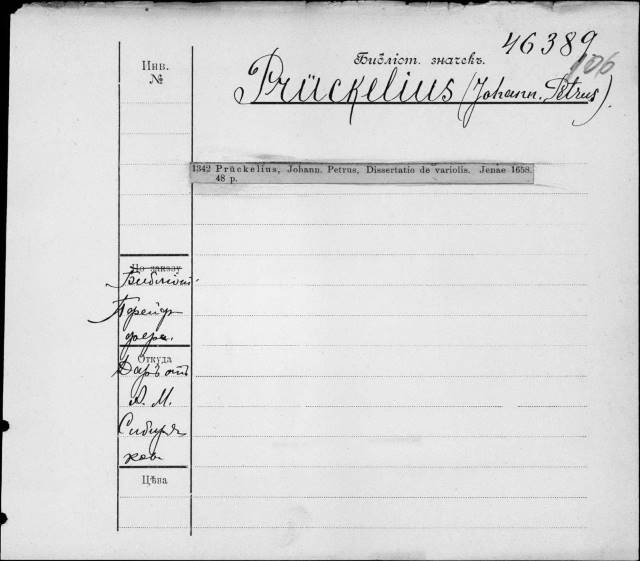 46389
106
Инв.
№
Библіот. значекъ.
Prückelius (Johann. Petrus).
1342 Prückelius, Johann. Petrus, Dissertatio de variolis. Jenae 1658.
48 p.
По заказу
Библіот.
Пфейф-
фера.
Откуда
Даръ отъ
А. М.
Сибиря-
кова
Цѣна